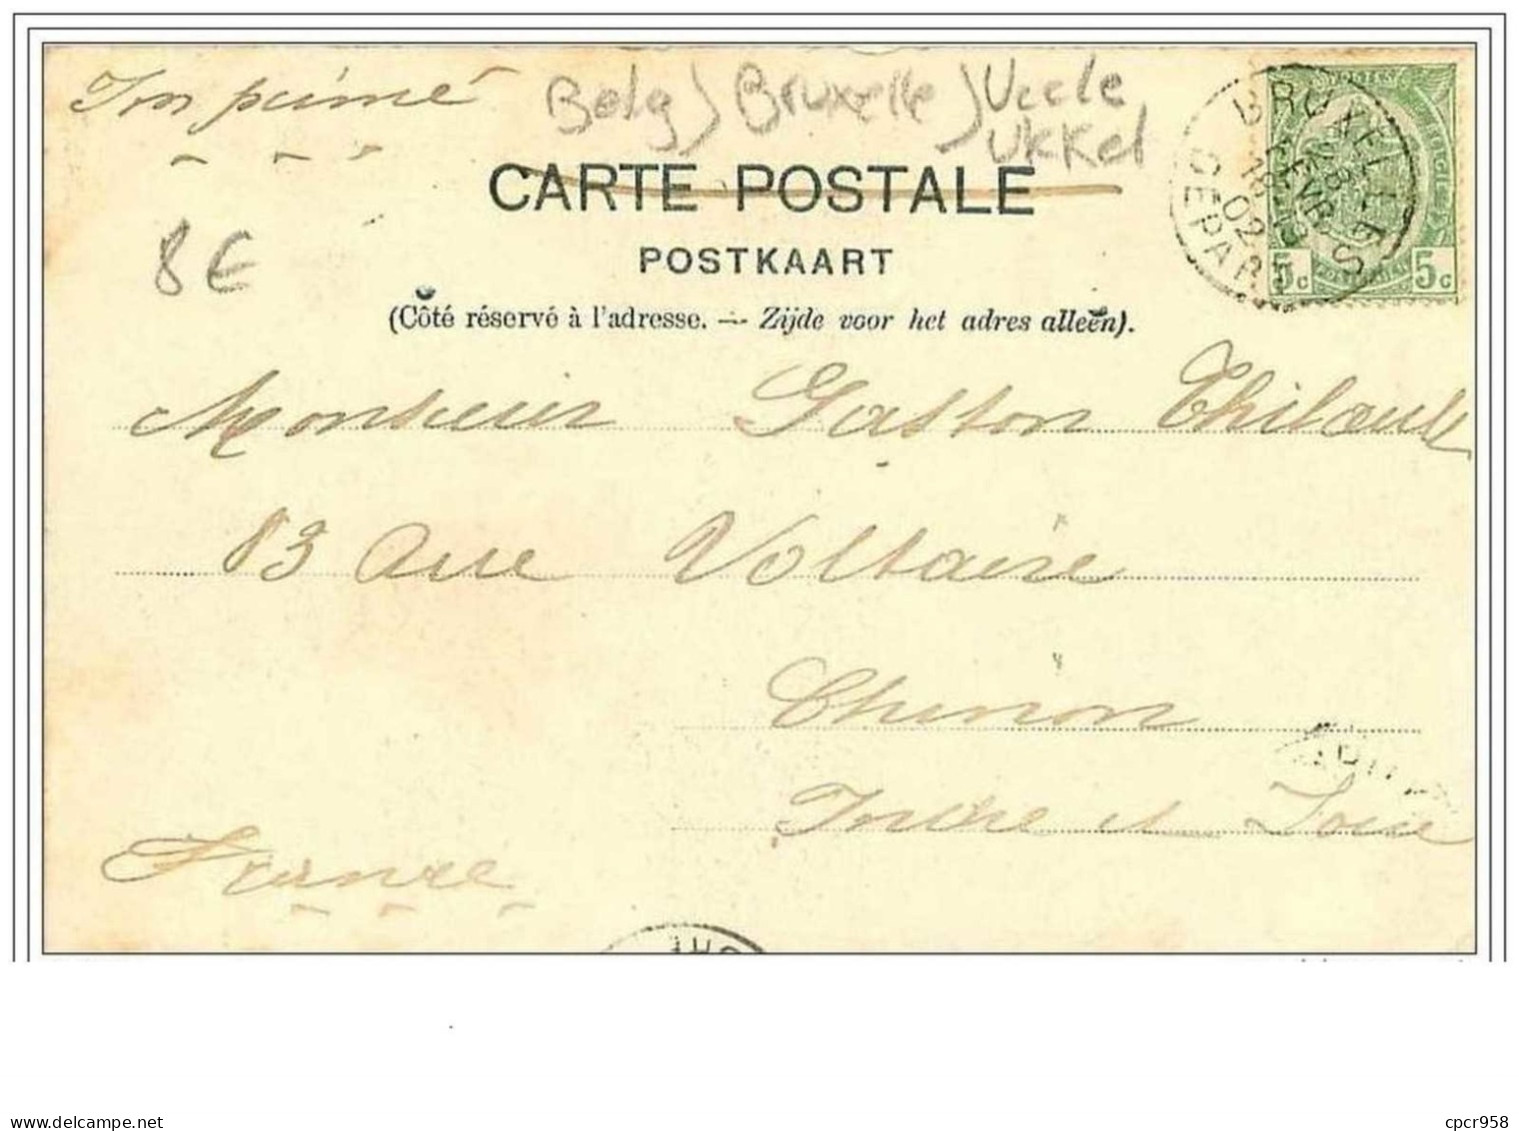 Imprimé
Belg) Bruxelle) Uccle
Ukkel
CARTE POSTALE
POSTKAART
8€
(Côté réservé à l'adresse. — Zijde voor het adres alleen).
BRUXELLES
FEVR
02
DEPART
5c 5c
Monsieur Gaston Thibault
83 Rue Voltaire
Chinon
Indre et Loire
France
delcampe.net
cpcr958